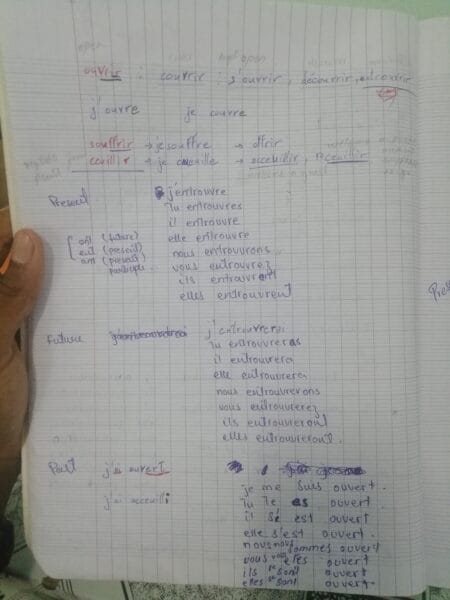 open
ouvrir : couvrir : s'ouvrir, découvrir, entrouvrir
j'ouvre je couvre
souffrir → je souffre → offrir
→ je cueille → acceuillir, receuillir
Present j'entrouvre
Tu entrouvres
il entrouvre
elle entrouvre
nous entrouvrons
vous entrouvrez
ils entrouvrent
elles entrouvrent
ont (future)
ent (present)
ant (present)
participe
Future j'entrouvrerai
Tu entrouvreras
il entrouvrera
elle entrouvrera
nous entrouvrerons
vous entrouvrerez
ils entrouvreront
elles entrouvreront.
Past j'ai ouvert
j'ai acceuilli
je me suis ouvert.
Tu te es ouvert.
il s'é est ouvert
elle s'est ouvert.
nous nous sommes ouvert
vous vous etes ouvert
ils se sont ouvert
elles se sont ouvert.